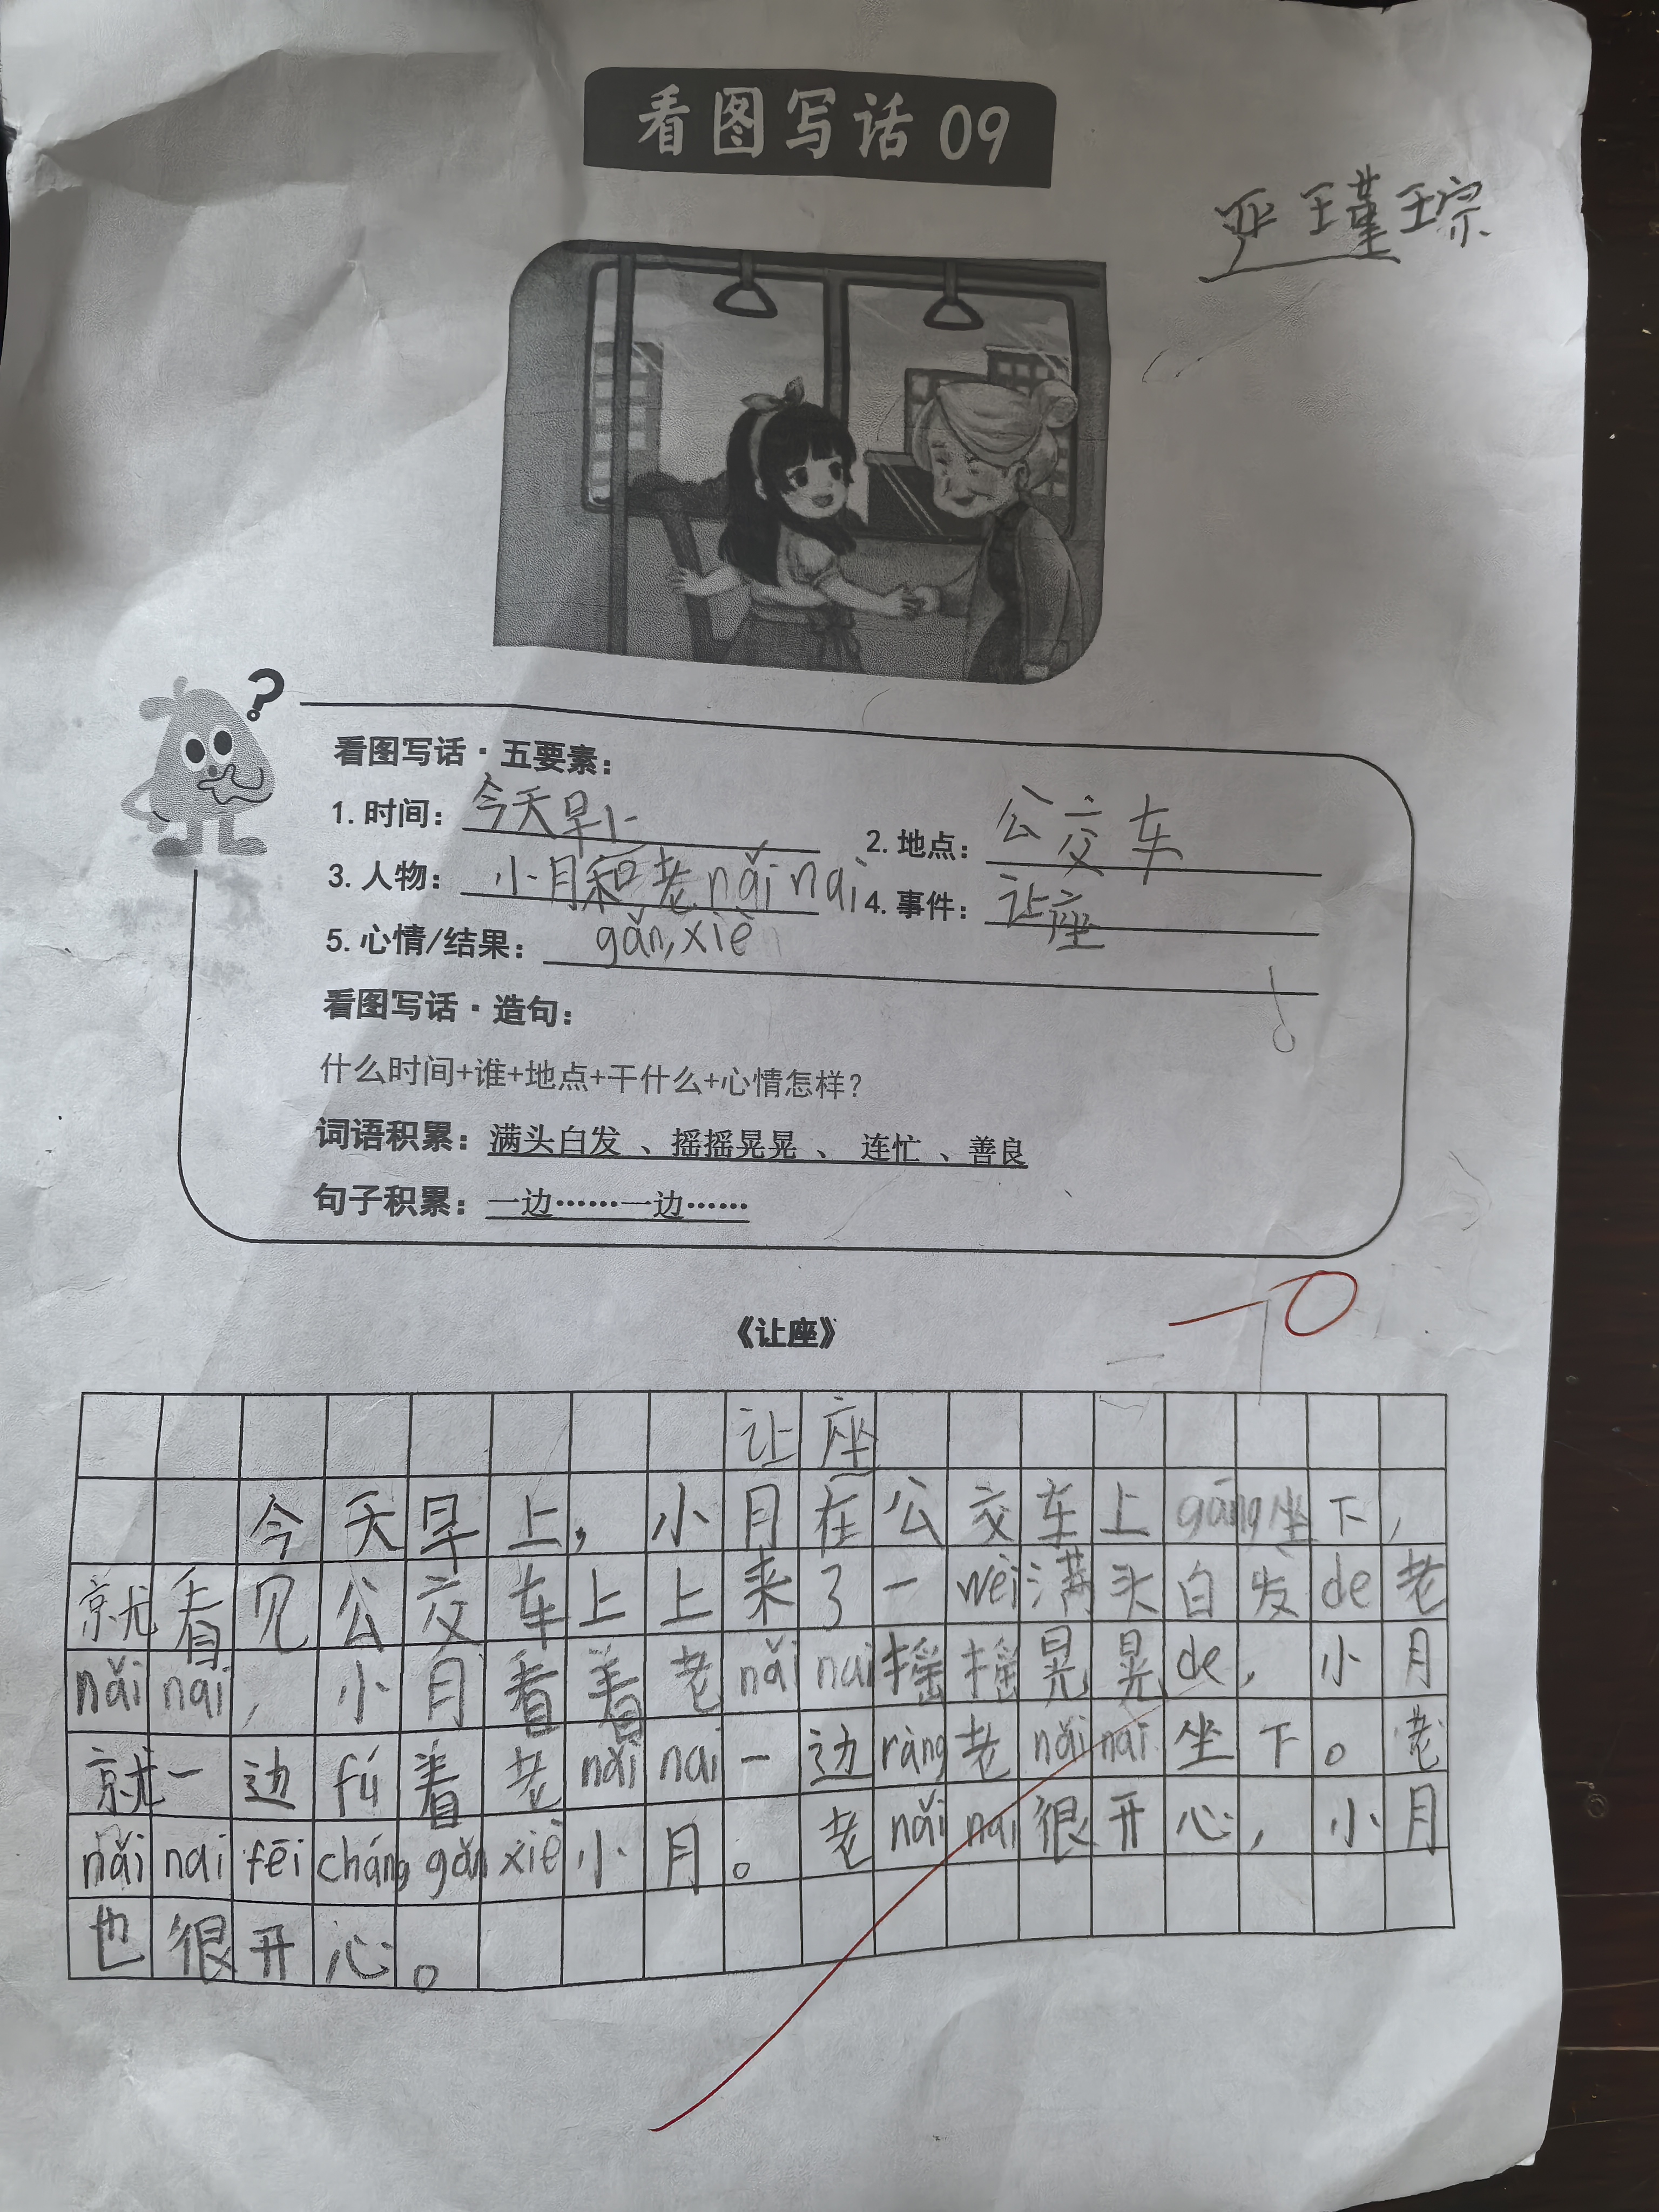 看图写话 09
严瑾琮
看图写话·五要素：
1.时间：今天早上
2.地点：公交车
3.人物：小月和老nǎi nai
4.事件：让座
5.心情/结果：gǎn xiè
看图写话·造句：
什么时间+谁+地点+干什么+心情怎样？
词语积累：满头白发 、摇摇晃晃 、 连忙 、善良
句子积累：一边……一边……
《让座》
让座
今天早上，小月在公交车上gāng坐下，
就看见公交车上上来了一wèi满头白发de老
nǎi nai，小月看着老nǎi nai摇摇晃晃de，小月
就一边fú着老nǎi nai一边ràng老nǎi nai坐下。老
nǎi nai fēi cháng gǎn xiè小月。老nǎi nai很开心，小月
也很开心。